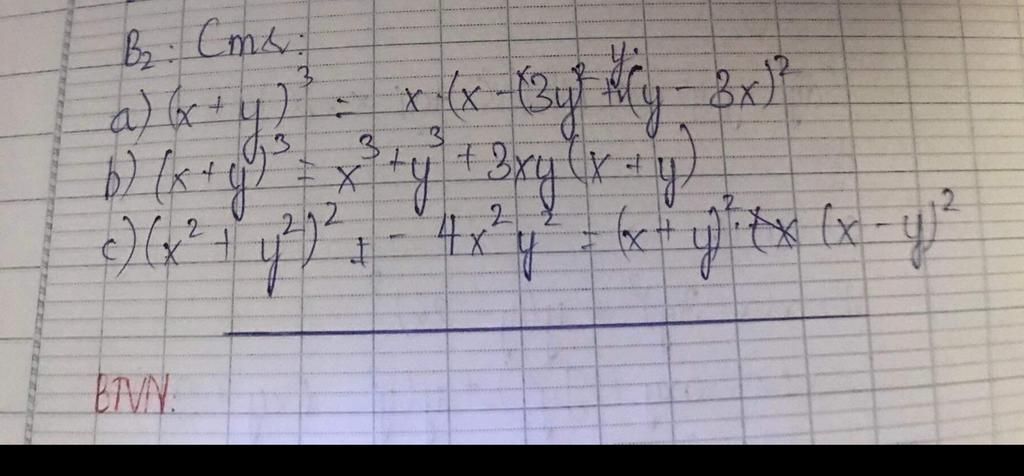 B2: Cm&:
a) (x + y)³ = x.(x - 3y)² + y.(y - 3x)²
b) (x + y)³ = x³ + y³ + 3xy(x + y)
c) (x² + y²)² - 4x²y² = (x + y)². (x - y)²
BTVN: